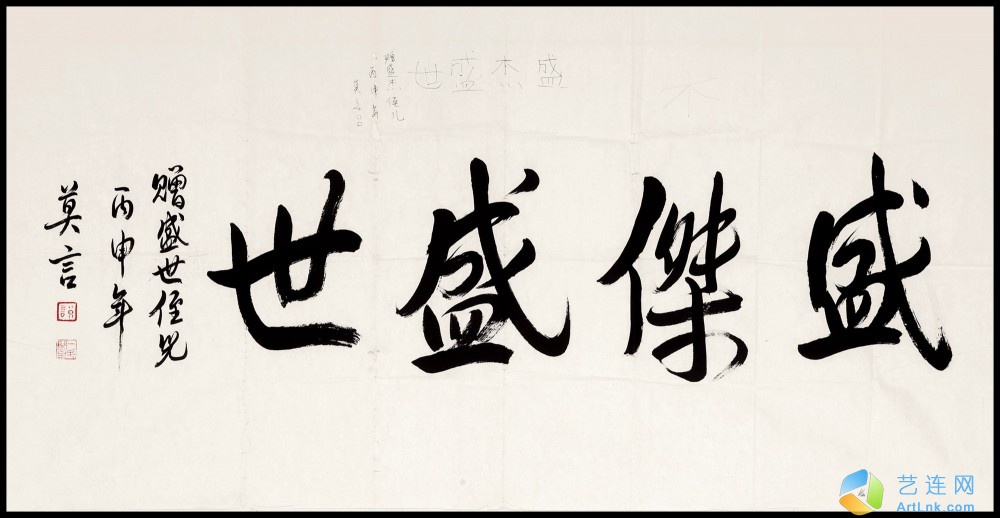 不
盛杰盛世
赠盛杰侄儿
丙申年
莫言
盛傑盛世
贈盛世侄兒
丙申年
莫言
艺连网
ArtLnk.com